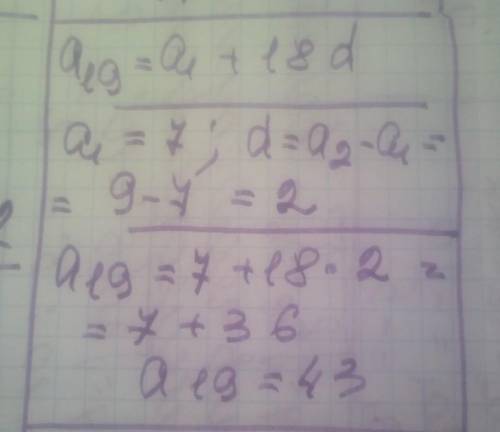 a₁₉ = a₁ + 18 d
a₁ = 7 ; d = a₂ - a₁ =
= 9 - 7 = 2
a₁₉ = 7 + 18 · 2 =
= 7 + 36
a₁₉ = 43